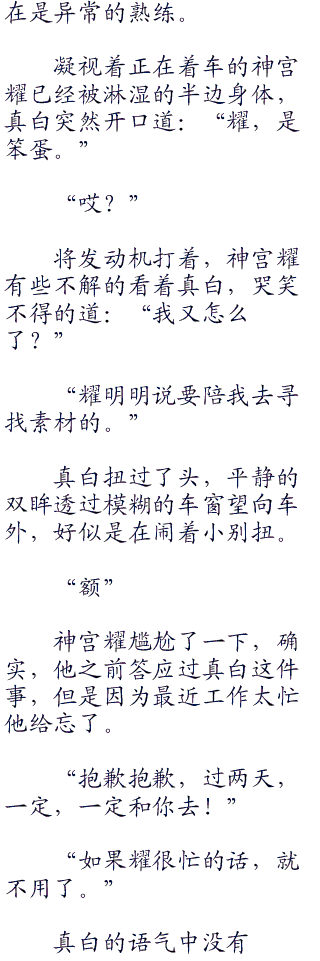 在是异常的熟练。
凝视着正在着车的神宫
耀已经被淋湿的半边身体，
真白突然开口道：“耀，是
笨蛋。”
“哎？”
将发动机打着，神宫耀
有些不解的看着真白，哭笑
不得的道：“我又怎么
了？”
“耀明明说要陪我去寻
找素材的。”
真白扭过了头，平静的
双眸透过模糊的车窗望向车
外，好似是在闹着小别扭。
“额”
神宫耀尴尬了一下，确
实，他之前答应过真白这件
事，但是因为最近工作太忙
他给忘了。
“抱歉抱歉，过两天，
一定，一定和你去！”
“如果耀很忙的话，就
不用了。”
真白的语气中没有